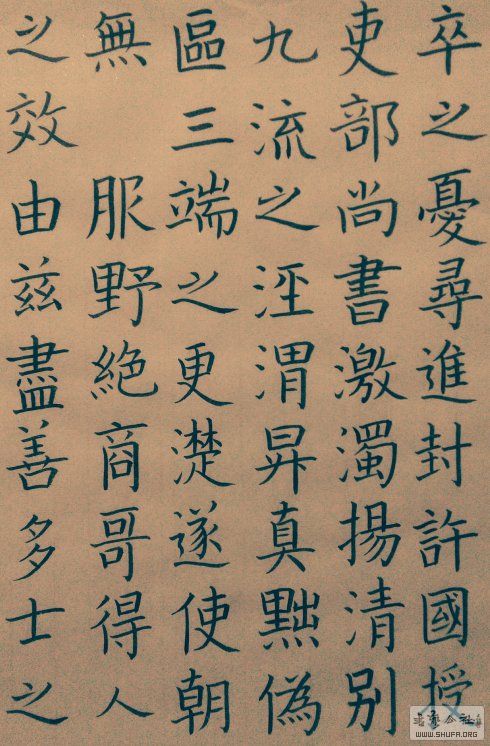 卒之憂尋進封許國授
吏部尚書激濁揚清别
九流之涇渭昇真黜偽
區三端之更濋遂使朝
無服野絶商哥得人
之效由兹盡善多士之
WWW.SHUFA.ORG